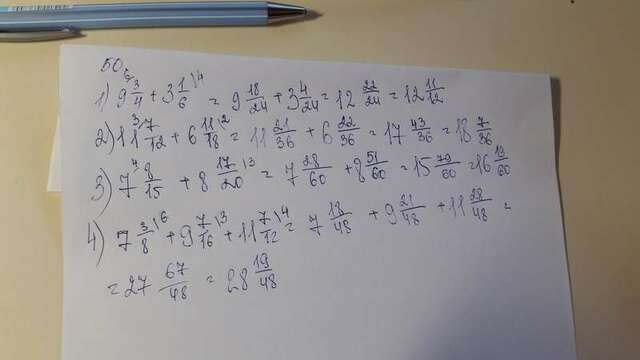 50.
1) 9 3/4 \6 + 3 1/6 \4 = 9 18/24 + 3 4/24 = 12 22/24 = 12 11/12
2) 11 3\ 7/12 + 6 11/18 \2 = 11 21/36 + 6 22/36 = 17 43/36 = 18 7/36
3) 7 4\ 8/15 + 8 17/20 \3 = 7 28/60 + 8 51/60 = 15 79/60 = 16 19/60
4) 7 3/8 \6 + 9 7/16 \3 + 11 7/12 \4 = 7 18/48 + 9 21/48 + 11 28/48 =
= 27 67/48 = 28 19/48